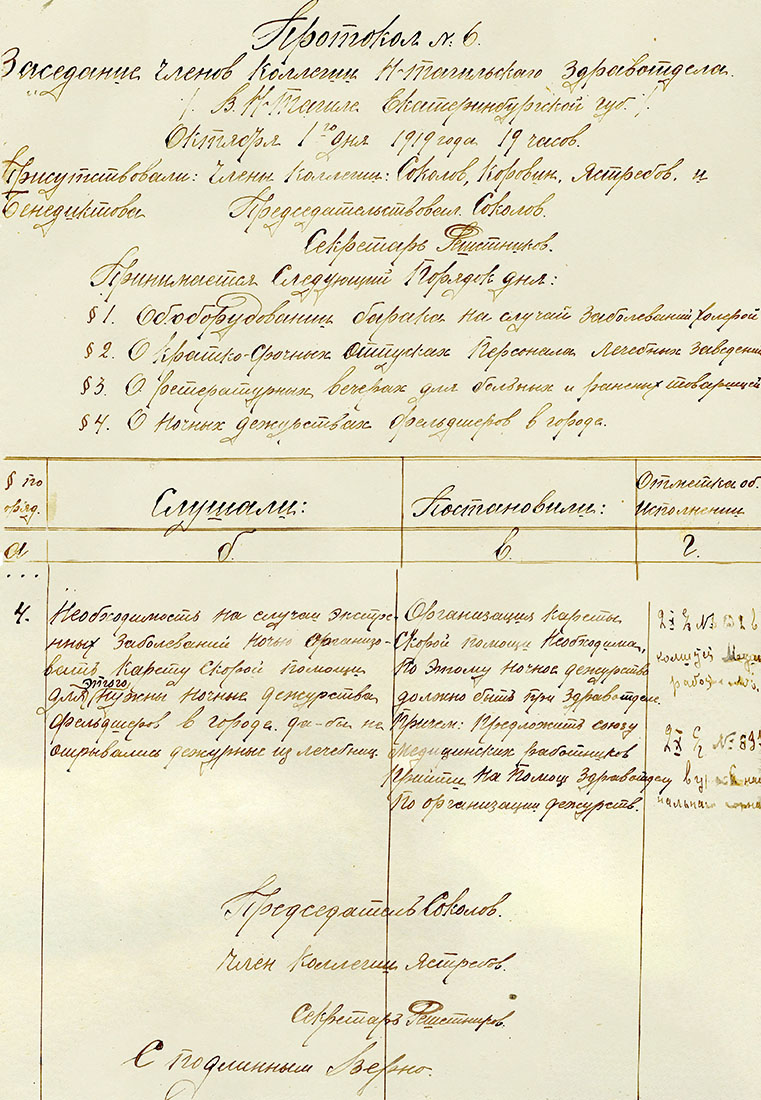 Протокол №. 6.
Заседание членов Коллегии Н-тагильского Здравотдела
/ В. Н-Тагиле Екатеринбургской губ /.
Октября 1го дня 1919 года 19 часов.
Присутствовали: члены Коллегии: Соколов, Коровин, Ястребов. и
Бенедиктова Председательствовал Соколов.
Секретарь Решетников.
Принимается следующий порядок дня:
§ 1. Об оборудовании барака на случай заболеваний холерой
§ 2. О кратко-срочных отпусках персонала лечебных заведени
§ 3. О литературных вечерах для больных и раненых товарищей
§ 4. О ночных дежурствах фельдшеров в города.
§ по
поряд.
Слушали:
Постановили:
Отметка об.
исполнении
а
б.
в.
г.
...
4.
Необходимость на случаи экстре-
нных заболеваний ночью организо-
вать карету скорой помощи
этого
для нужны ночные дежурства
фельдшеров в города. да-бы не
отрывались дежурные из лечебниц.
Организация кареты
скорой помощи необходима,
по этому ночное дежурство
должно быть при Здравотделе.
Причем: предложить союзу
медицинских работников
прийти на помощ Здравотделу
по организации дежурств.
№
№
Председатель Соколов.
Член Коллегии Ястребов.
Секретарь Решетников.
С подлинным Верно.